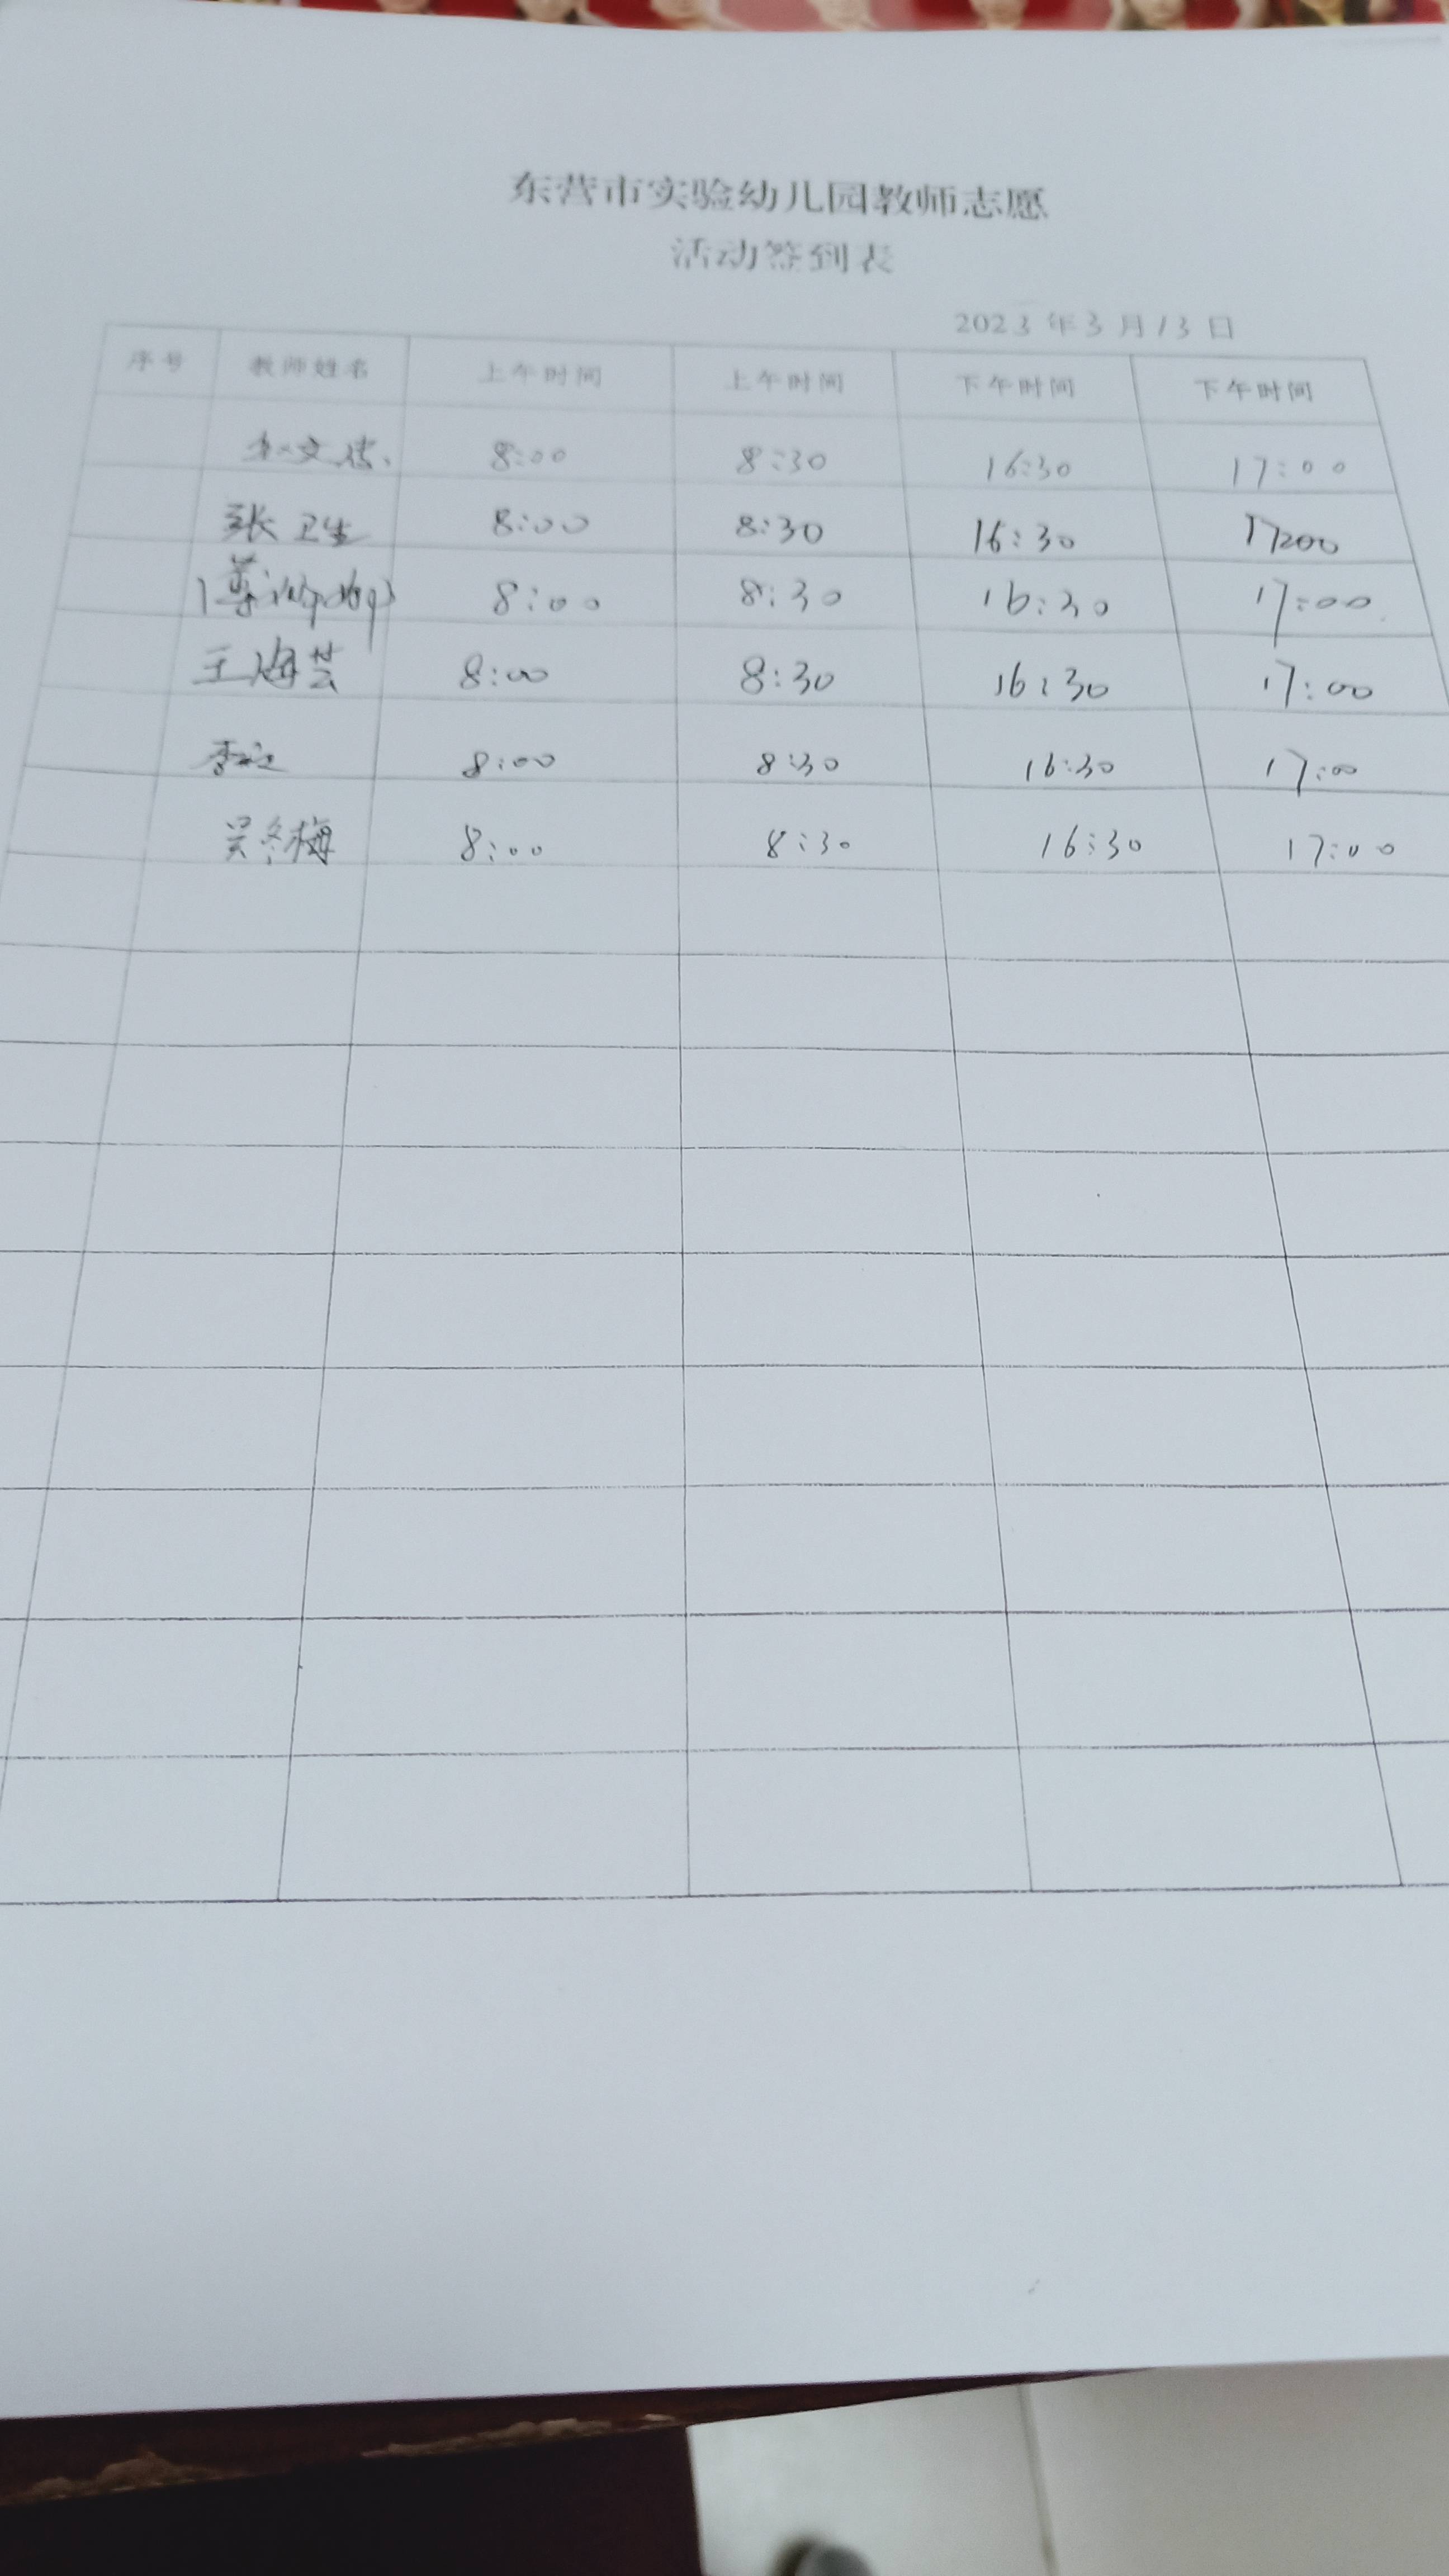 东营市实验幼儿园教师志愿
活动签到表
2023年3月13日
序号 教师姓名 上午时间 上午时间 下午时间 下午时间
8:00 8:30 16:30 17:00
张卫生 8:00 8:30 16:30 17:00
8:00 8:30 16:30 17:00
王海芸 8:00 8:30 16:30 17:00
8:00 8:30 16:30 17:00
吴冬梅 8:00 8:30 16:30 17:00